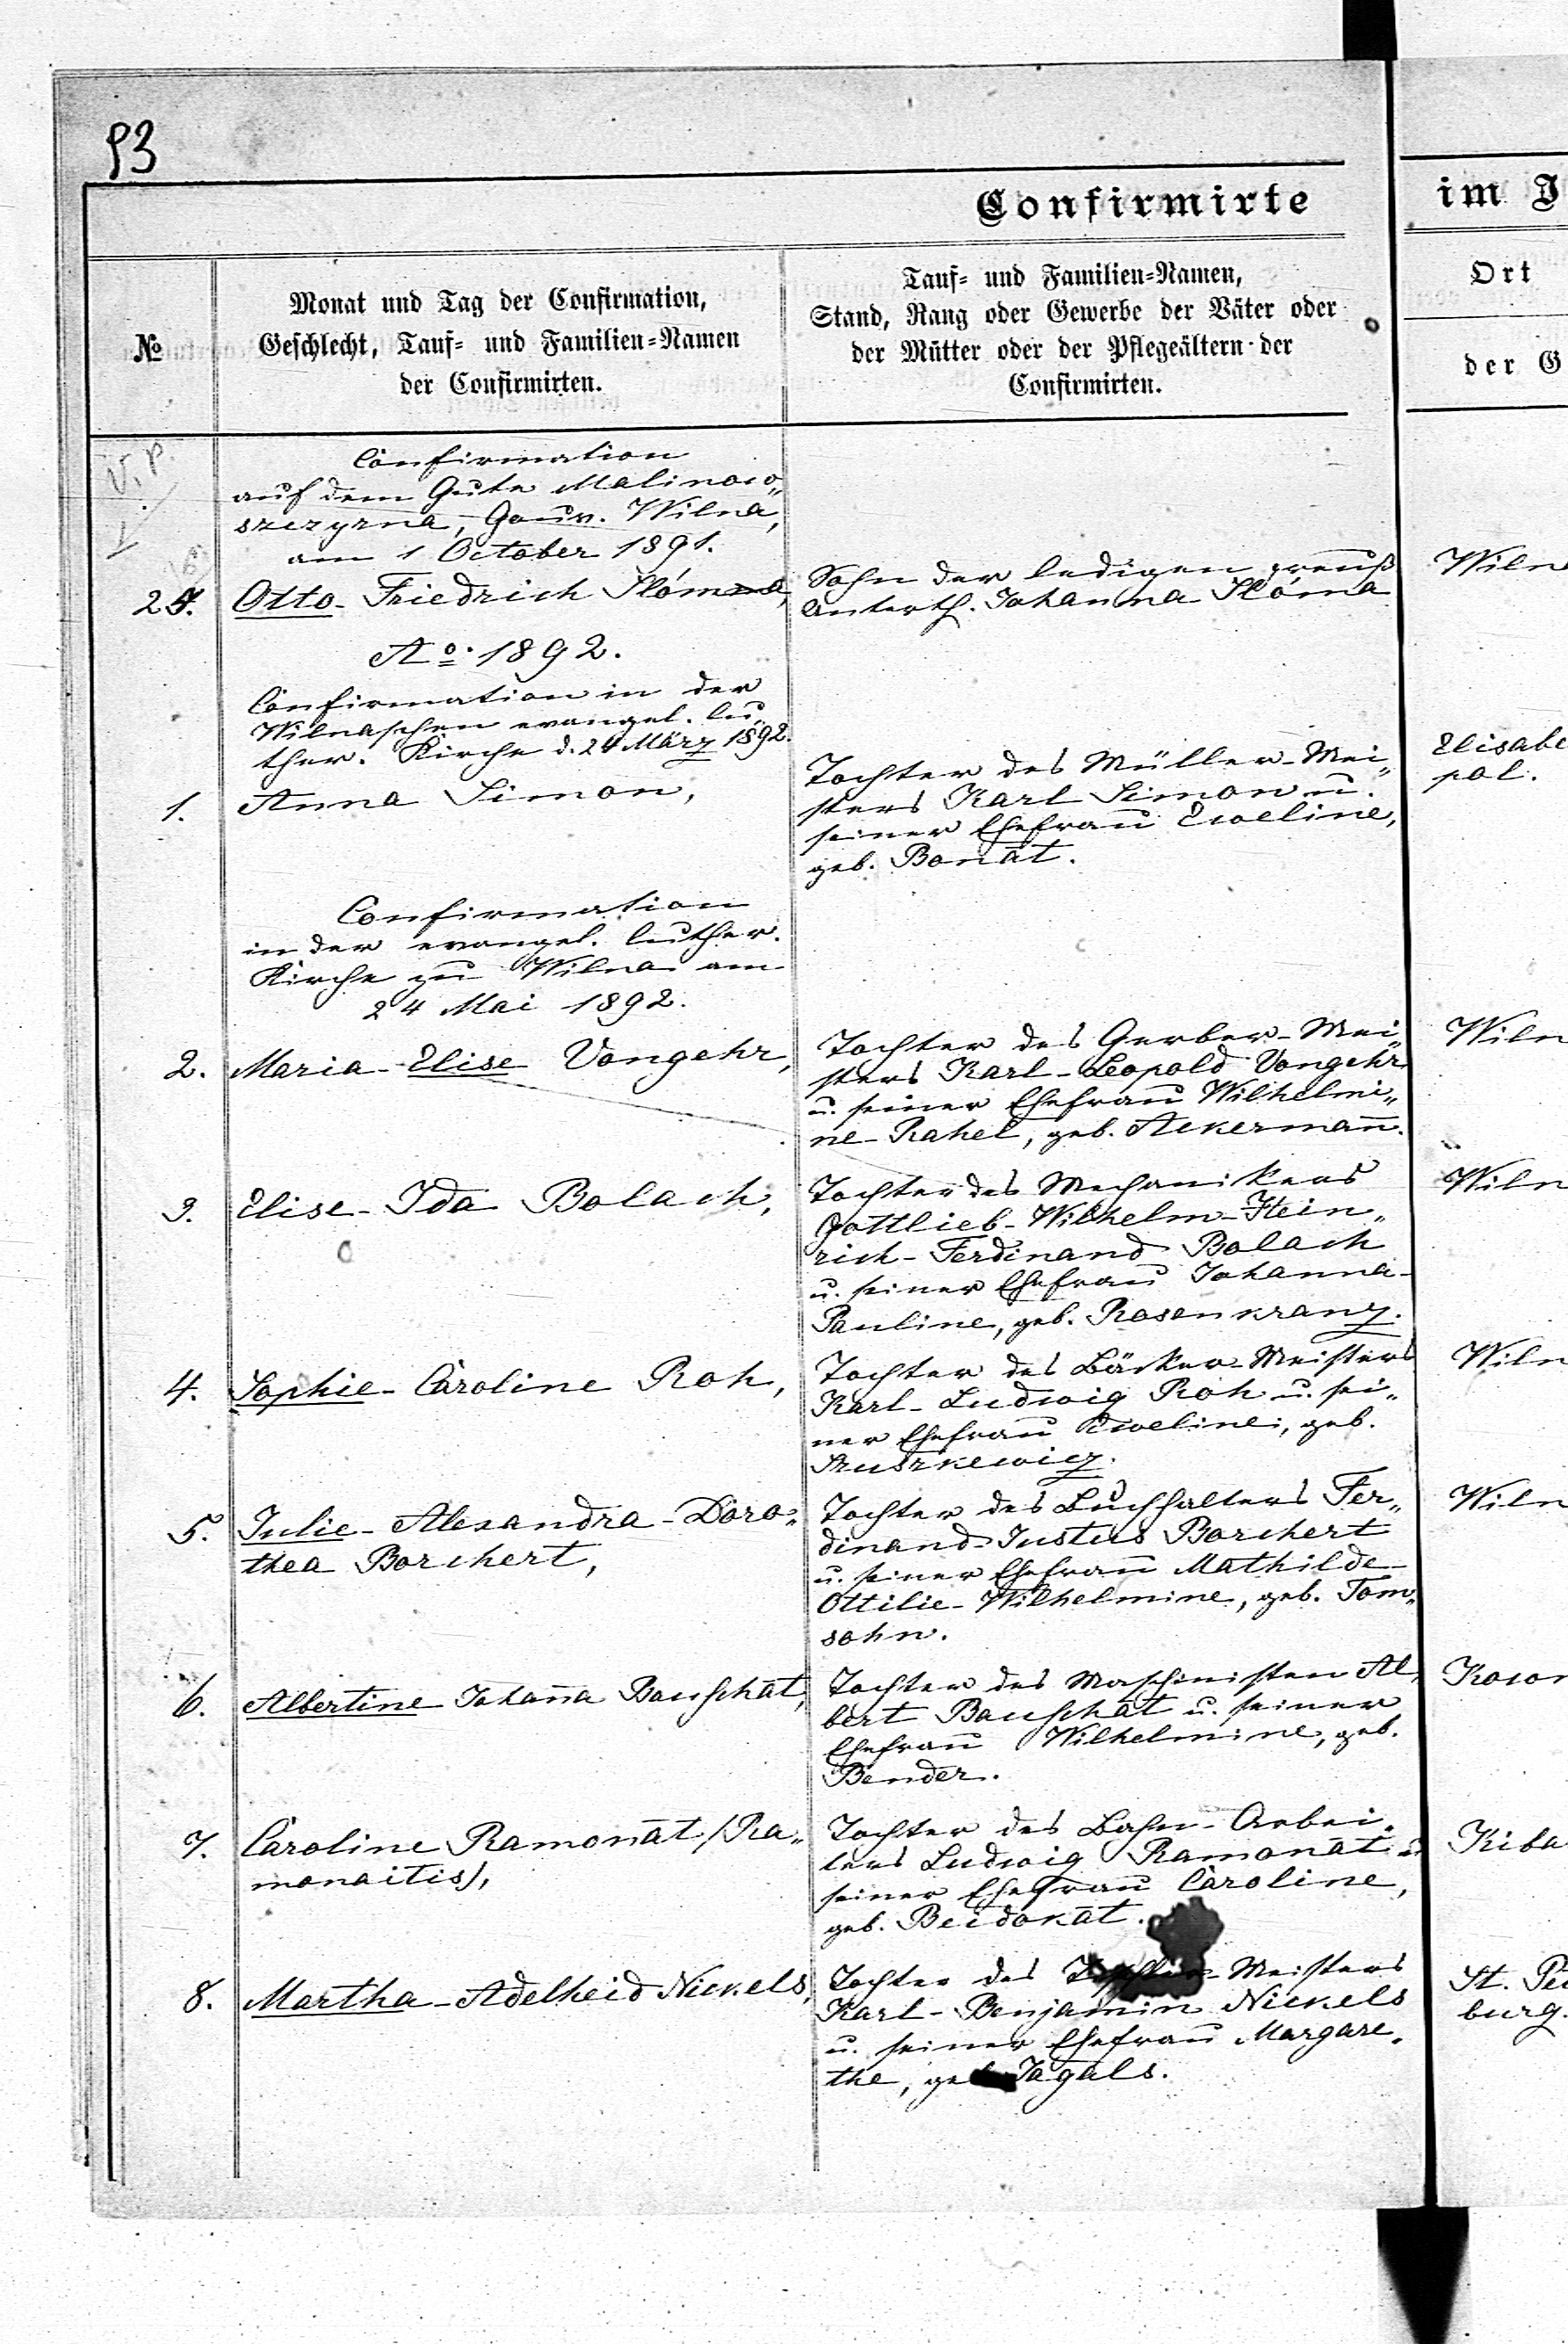 93
Confirmirte
im J
№
Monat und Tag der Confirmation,
Geschlecht, Tauf- und Familien-Namen
der Confirmirten.
Tauf- und Familien-Namen,
Stand, Rang oder Gewerbe der Väter oder
der Mütter oder der Pflegeältern der
Confirmirten.
Ort
der G
V. P.
Confirmation
auf dem Gute Malinow„
szczyzna, Gouv. Wilna,
am 1 October 1891.
Otto-Friedrich
Sohn der ledigen preuß.
Unterth. Johanna Slóma
Wiln
Aº. 1892.
Confirmation in der
Wilnaschen evangel. lu„
ther. Kirche d. 24 März 1892.
1.
Anna Simon,
Tochter des Müller-Mei„
sters Karl Simon u.
seiner Ehefrau Eweline,
geb. Bonat.
Elisabe
pol.
Confirmation
in der evangel. luther.
Kirche zu Wilna am
24 Mai 1892.
2.
Maria-Elise Vongehr,
Tochter des Gerber-Mei„
sters Karl-Leopold Vongehr
u. seiner Ehefrau Wilhelmi„
ne-Rahel, geb. Ackermañ.
Wiln
3.
Elise-Ida Bolach,
Tochter des Mechanikers
Gottlieb-Wilhelm-Hein„
rich-Ferdinand Bolach
u. seiner Ehefrau Johanna-
Pauline, geb. Rosenkranz.
Wiln
4.
Sophie-Caroline Roh,
Tochter des Bäcker-Meisters
Karl-Ludwig Roh u. sei„
ner Ehefrau Eweline, geb.
Szuszkewicz.
Wiln
5.
Julie-Alexandra-Doro„
thea Borchert,
Tochter des Buchhalters Fer„
dinand-Justus Borchert
u. seiner Ehefrau Mathilde-
Ottilie-Wilhelmine, geb. Tom„
sohn.
Wiln
6.
Albertine Johaña Bauschat,
Tochter des Maschinisten Al„
bert Bauschat u. seiner
Ehefrau Wilhelmine, geb.
Bender.
Kown
7.
Caroline Ramonat /Ra„
monaitis/,
Tochter des Bahn-Arbei„
ters Ludwig Ramonat u
seiner Ehefrau Caroline,
geb. Beidokat.
Kiba
8.
Martha-Adelheid Nickels,
Tochter des Tischler-Meisters
Karl-Benjamin Nickels
u. seiner Ehefrau Margare„
the, geb. Jagals.
St. Pe
burg.